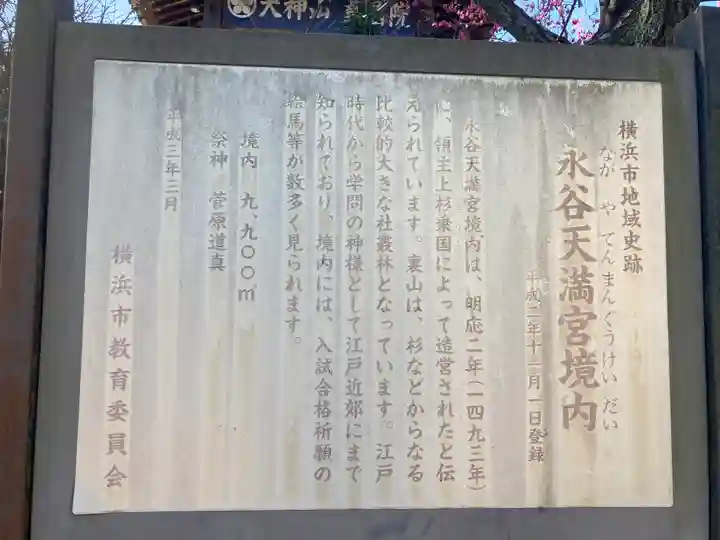 天神山
院
横浜市地域史跡
ながやてんまんぐうけいだい
永谷天満宮境内
平成二年十一月一日登録
永谷天満宮境内は、明応二年(一四九三年)
に、領主上杉乗国によって造営されたと伝
えられています。裏山は、杉などからなる
比較的大きな社叢林となっています。江戸
時代から学問の神様として江戸近郊にまで
知られており、境内には、入試合格祈願の
絵馬等が数多く見られます。
境内 九、九〇〇㎡
祭神 菅原道真
平成三年三月
横浜市教育委員会